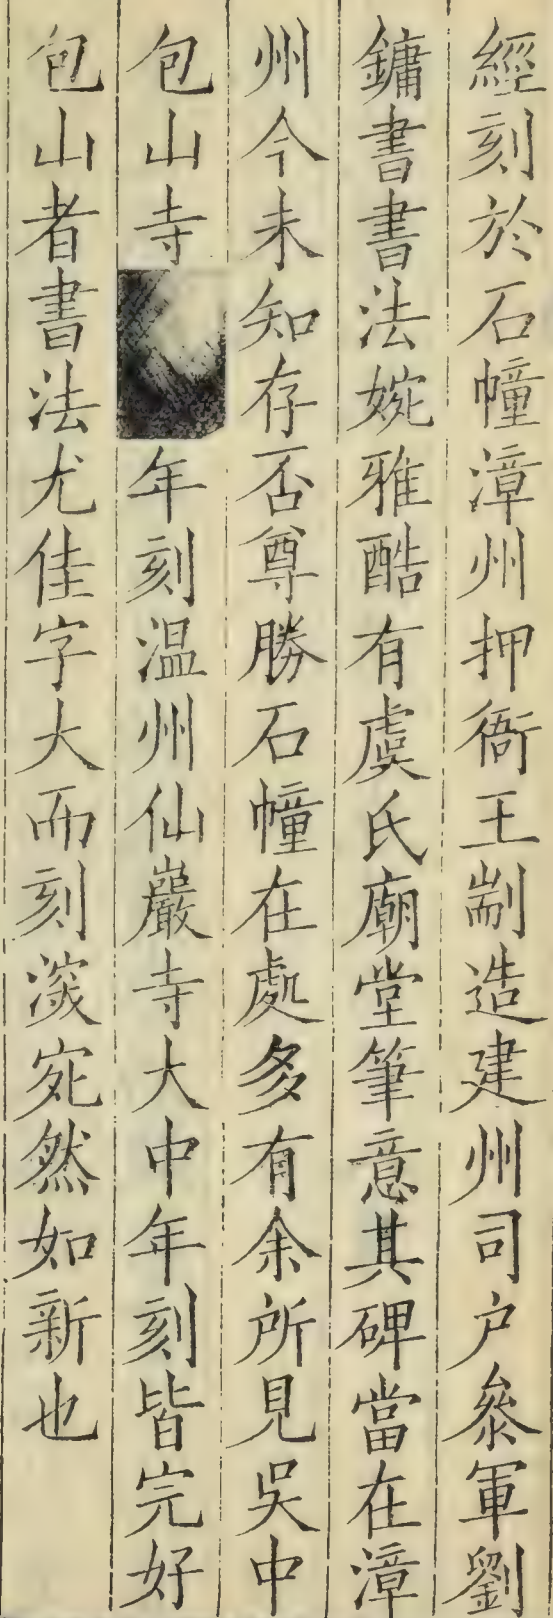 經刻於石幢漳州押衙王剬造建州司户叅軍劉
鏞書書法婉雅酷有虞氏廟堂筆意其碑當在漳
州今未知存否尊勝石幢在處多有余所見吳中
包山寺年刻温州仙巖寺大中年刻皆完好
包山者書法尤佳字大而刻淡宛然如新也